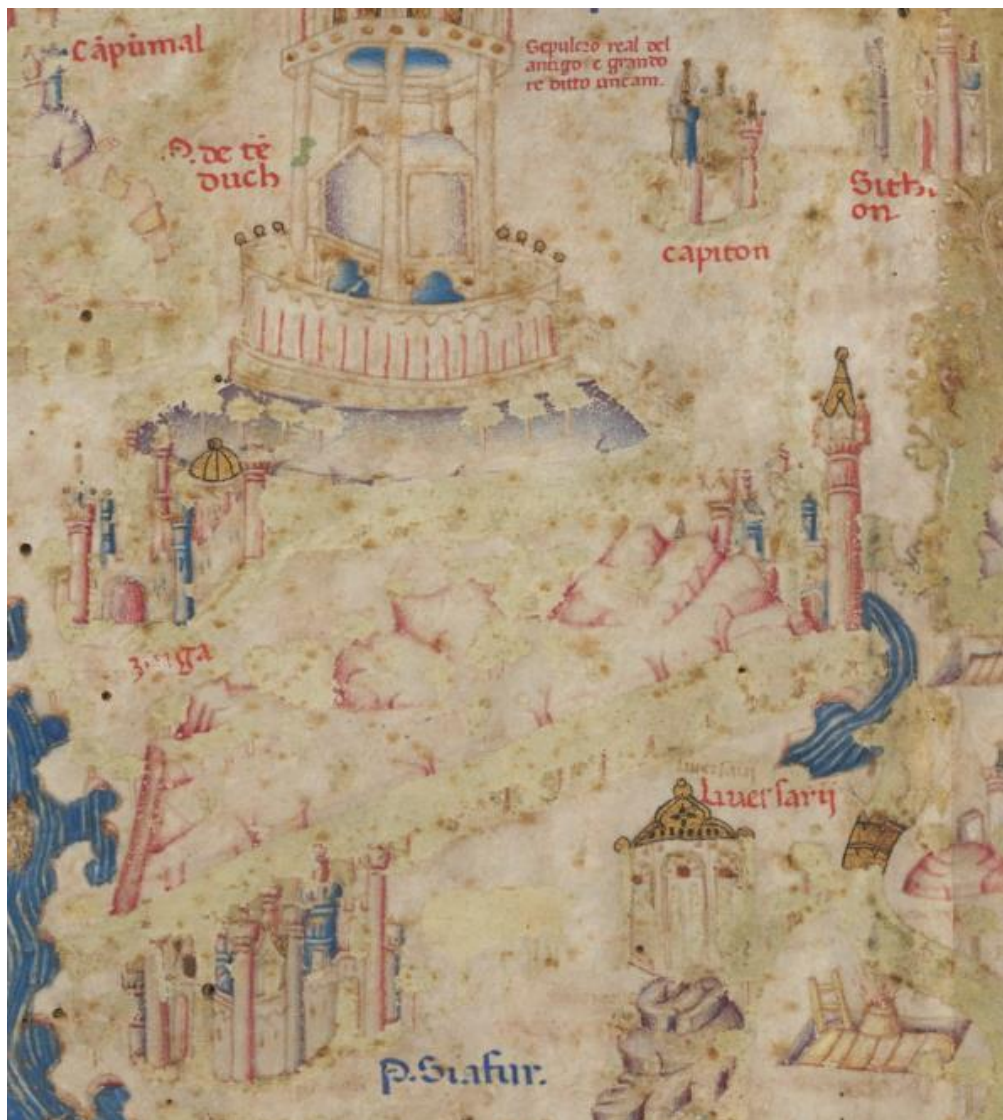 cāpimal
Sepulcro real del
antigo e grando
re ditto uncam.
P. de tē
duch
Sith
on
capiton
Liuersarij
P. Siafur.